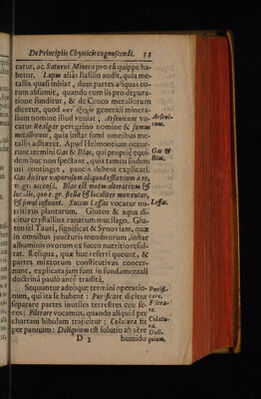 De Principiis Chymicis cognoscendi. 53
catur, ac Saturni Minera pro eâ quippe ha-
betur. Lupus aliàs Basilio audit, quia me-
tallis quasi inhiat, dum partes aliquas eo-
rum absumit, quando cum iis pro depura-
tione funditur, & de Croco metallorum
dicetur, quod generali minera-
lium nomine illud veniat; Arsenicum vo-
catur Realgar peregrino nomine & fumus
metallorum, quia instar fumi omnibus me-
tallis adhæret. Apud Helmontium occur-
runt termini Gas & Blas, qui propriè equi-
dem huc non spectant, quia tamen iisdem
uti contingit, paucis debent explicari.
Gas dicitur vaporosum aliquod effluvium à re,
v. gr. accensa. Blas est motus alterativus &
localis, quo e. gr. stellæ & localiter moventur,
& simul influunt. Succus Leffas vocatur nu-
tritivus plantarum. Gluten & aqua di-
citur crystallina ranarum mucilago. Glu-
ten ist Tauri, significat & Synoviam, quæ
in omnibus juncturis membrorum, instar
albuminis ovorum ex succo nutritio resul-
tat. Reliqua, quæ huc referri queunt, &
partes mixtorum constitutivas concer-
nunt, explicata jam sunt in fundamentali
doctrina paulò antè tradita.
Sequuntur adeoque termini operatio-
num, qui ita se habent: Purificare dicitur
separare partes inutiles terrestres ceu fe-
ces: Filtrare vocamus, quando aliquid per
chartam bibulam trajicitur: Colatura fit
per pannum: Deliquium est solutio ab aëre
D 3 humido
Arseni-
cum.
Gas &
Blas.
Leffas.
Purifi-
care.
Filtra-
re.
Colatu-
ra.
Deli-
quium.